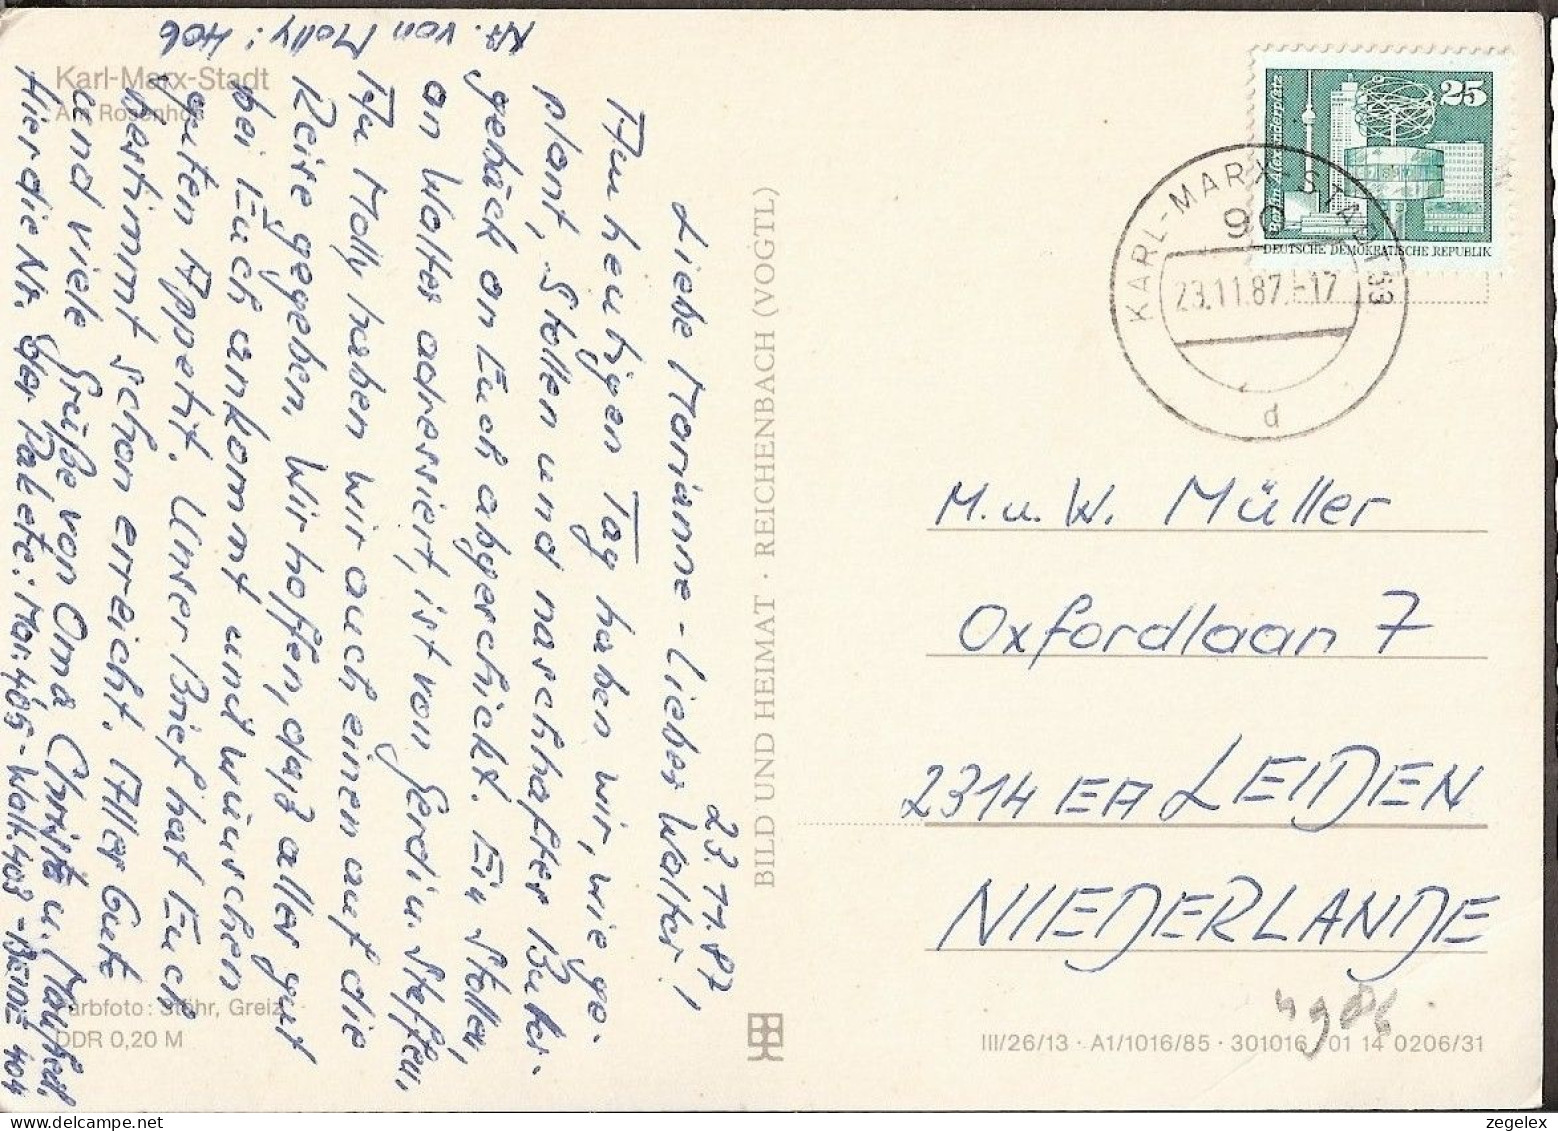 Karl-Marx-Stadt
Am Rosenhof
23.11.87
Liebe Marianne - Lieber Walter!
Am heutigen Tag haben wir, wie ge-
plant, Stollen und naschhafter Butter-
gebäck an Euch abgeschickt. Ein Stollen,
an Walter adressiert, ist von Gerd u. Steffen.
An Molly haben wir auch einen auf die
Reise gegeben. Wir hoffen, daß aller gut
bei Euch ankommt und wünschen
guten Appetit. Unser Brief hat Euch
bestimmt schon erreicht. Alles Gute
und viele Grüße von Oma Christa u. Manfred.
Hier die Nr. der Pakete: Mar. 405 - Walt. 403 - BEIDE 404
Nr. von Molly: 406
Farbfoto: Stöhr, Greiz
DDR 0,20 M
BILD UND HEIMAT · REICHENBACH (VOGTL)
25
Berlin, Alexanderplatz
DEUTSCHE DEMOKRATISCHE REPUBLIK
KARL-MARX-STADT 33
90
23.11.87.-17
d
M. u. W. Müller
Oxfordlaan 7
2314 EA LEIDEN
NIEDERLANDE
III/26/13 · A1/1016/85 · 301016 01 14 0206/31
zegelex